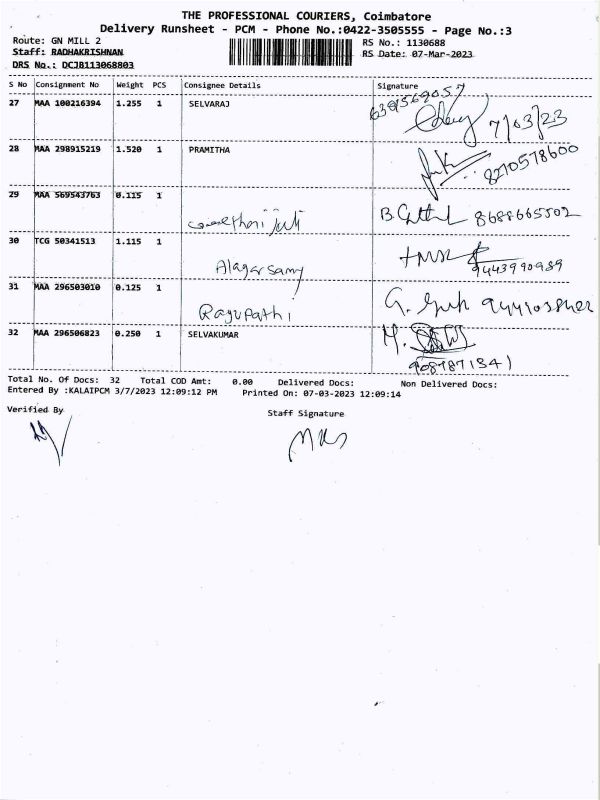 THE PROFESSIONAL COURIERS, Coimbatore
Delivery Runsheet - PCM - Phone No.:0422-3505555 - Page No.:3
Route: GN MILL 2
RS No.: 1130688
Staff: RADHAKRISHNAN
RS Date: 07-Mar-2023
DRS No.: DCJB113068803
S No Consignment No Weight PCS Consignee Details Signature
27 MAA 100216394 1.255 1 SELVARAJ
7/03/23
28 MAA 298915219 1.520 1 PRAMITHA
8270578600
29 MAA 569543763 0.115 1
8688665502
30 TCG 50341513 1.115 1
Alagarsamy 9443990989
31 MAA 296503010 0.125 1
Ragupathi
32 MAA 296506823 0.250 1 SELVAKUMAR
Total No. Of Docs: 32 Total COD Amt: 0.00 Delivered Docs: Non Delivered Docs:
Entered By :KALAIPCM 3/7/2023 12:09:12 PM Printed On: 07-03-2023 12:09:14
Verified By
Staff Signature